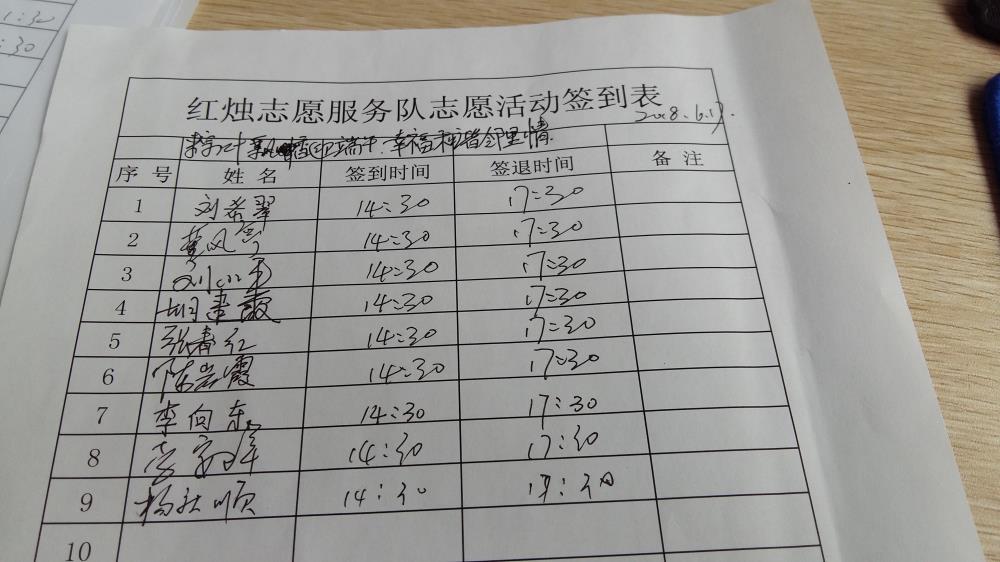 1:30
:30
红烛志愿服务队志愿活动签到表
2018.6.17.
端午 幸福 邻里情
序号 姓名 签到时间 签退时间 备注
1 刘希翠 14:30 17:30
2 14:30 17:30
3 刘 14:30 17:30
4 胡建敏 14:30 17:30
5 张春红 14:30 17:30
6 陈岩霞 14:30 17:30
7 李向东 14:30 17:30
8 李 14:30 17:30
9 杨 顺 14:30 17:30
10